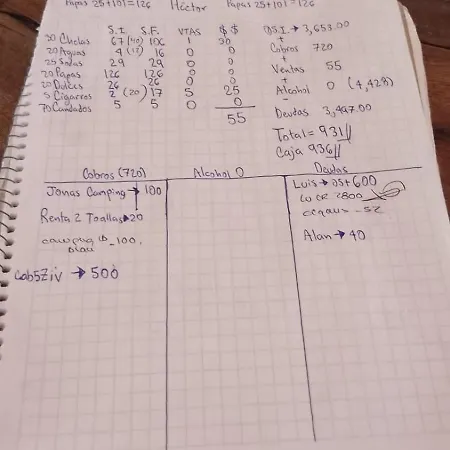 Papas 25+101=126 Héctor Papas 25+101=126
S.I. S.F. VTAS $$
30 Chelas 67 (40) 106 1 30
20 Aguas 4 (12) 16 0 0
25 Sodas 29 29 0 0
20 Papas 126 126 0 0
20 Dulces 26 26 0 0
5 Cigarros 2 (20) 17 5 25
70 Candados 5 5 0 0
55
$S.I. → 3,653.00
+
Cobros 720
+
Ventas 55
+
Alcohol 0 (4,428)
-
Deudas 3,497.00
Total = 931
Caja 936
Cobros (720) Alcohol 0 Deudas
Jonas Camping → 100
Renta 2 Toallas → 20
100
Cab5Ziv → 500
Luis → 600
2800
52
Alan → 40